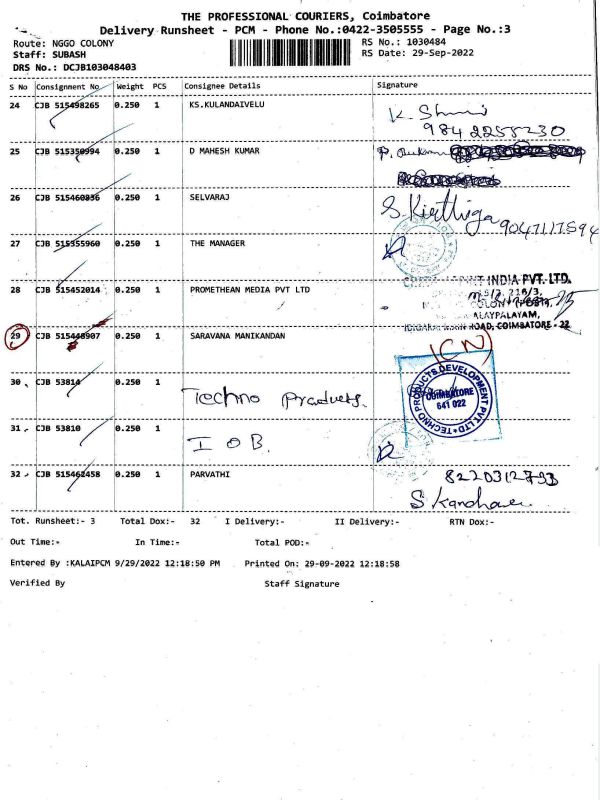 THE PROFESSIONAL COURIERS, Coimbatore
Delivery Runsheet - PCM - Phone No.:0422-3505555 - Page No.:3
Route: NGGO COLONY RS No.: 1030484
Staff: SUBASH RS Date: 29-Sep-2022
DRS No.: DCJB103048403
S No Consignment No Weight PCS Consignee Details Signature
24 CJB 515498265 0.250 1 KS.KULANDAIVELU
984 2255230
25 CJB 515350994 0.250 1 D MAHESH KUMAR
26 CJB 515460836 0.250 1 SELVARAJ S. Kirthiga 9047117594
27 CJB 515355960 0.250 1 THE MANAGER
28 CJB 515452014 0.250 1 PROMETHEAN MEDIA PVT LTD
INDIA PVT. LTD.
ROAD, COIMBATORE - 22
29 CJB 515448907 0.250 1 SARAVANA MANIKANDAN
30 CJB 53814 0.250 1 Techno Products.
TECHNO PRODUCTS DEVELOPMENT PVT LTD
COIMBATORE
641 022
31 CJB 53810 0.250 1 I O B.
32 CJB 515462458 0.250 1 PARVATHI 8220312793
Tot. Runsheet:- 3 Total Dox:- 32 I Delivery:- II Delivery:- RTN Dox:-
Out Time:- In Time:- Total POD:-
Entered By :KALAIPCM 9/29/2022 12:18:50 PM Printed On: 29-09-2022 12:18:58
Verified By Staff Signature